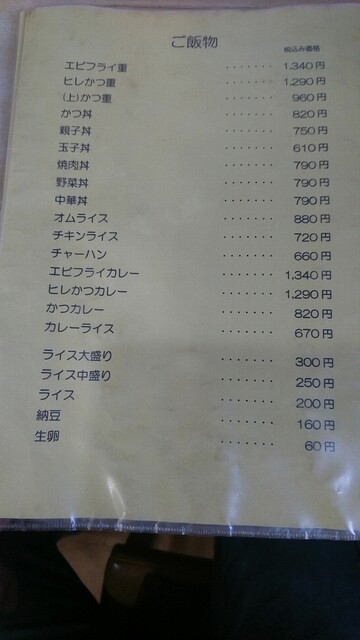 ご飯物
税込み価格
エビフライ重 ・・・・・・・ 1,340円
ヒレかつ重 ・・・・・・・ 1,290円
(上)かつ重 ・・・・・・・ 960円
かつ丼 ・・・・・・・ 820円
親子丼 ・・・・・・・ 750円
玉子丼 ・・・・・・・ 610円
焼肉丼 ・・・・・・・ 790円
野菜丼 ・・・・・・・ 790円
中華丼 ・・・・・・・ 790円
オムライス ・・・・・・・ 880円
チキンライス ・・・・・・・ 720円
チャーハン ・・・・・・・ 660円
エビフライカレー ・・・・・・・ 1,340円
ヒレかつカレー ・・・・・・・ 1,290円
かつカレー ・・・・・・・ 820円
カレーライス ・・・・・・・ 670円
ライス大盛り ・・・・・・・ 300円
ライス中盛り ・・・・・・・ 250円
ライス ・・・・・・・ 200円
納豆 ・・・・・・・ 160円
生卵 ・・・・・・・ 60円